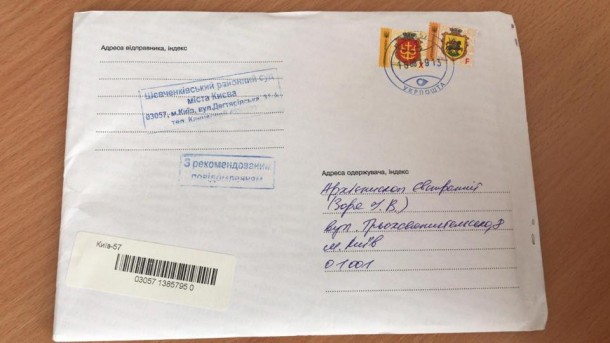 Адреса відправника, індекс
Шевченківський районний суд
міста Києва
03057, м.Київ, вул.Дегтярівська 31-А
З рекомендованим
повідомленням
F
18 12
УКРПОШТА
Адреса одержувача, індекс
Архієпископ Євстратій
(Зоря І.В.)
вул. Трьохсвятительська,
м. Київ
01001
Київ-57
03057 1385795 0